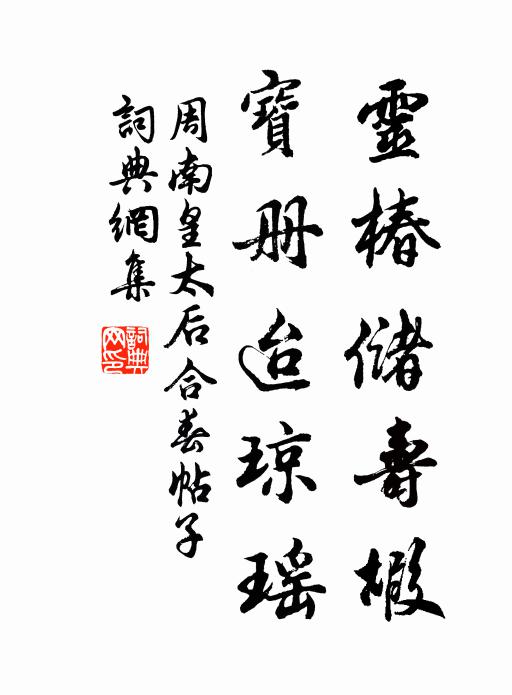 靈椿儲壽嘏
寶册迨琼瑶
周南皇太后合春帖子
詞典網集
詞典网印